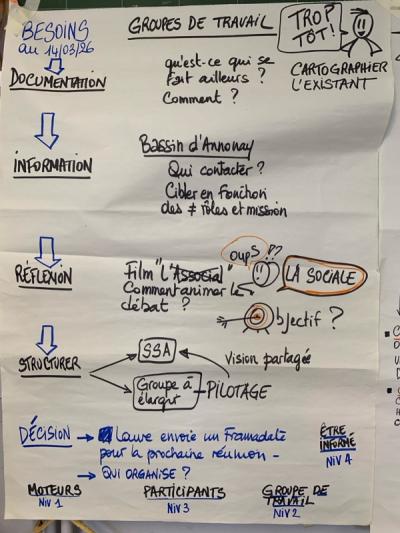 BESOINS
au 14/03/26
GROUPES DE TRAVAIL
TROP
TÔT!
DOCUMENTATION
qu'est-ce qui se
fait ailleurs ?
Comment ?
CARTOGRAPHIER
L'EXISTANT
INFORMATION
Bassin d'Annonay
Qui contacter ?
Cibler en fonction
des ≠ rôles et mission
RÉFLEXION
Film "L'Associal"
Comment animer le
débat ?
oups !??
LA SOCIALE
Objectif ?
STRUCTURER
SSA
Vision partagée
Groupe à
élargir
PILOTAGE
DÉCISION
Laure envoie un Framadate
pour la prochaine réunion -
QUI ORGANISE ?
ÊTRE
INFORMÉ
NIV 4
MOTEURS
NIV 1
PARTICIPANTS
NIV 3
GROUPE DE
TRAVAIL
NIV 2